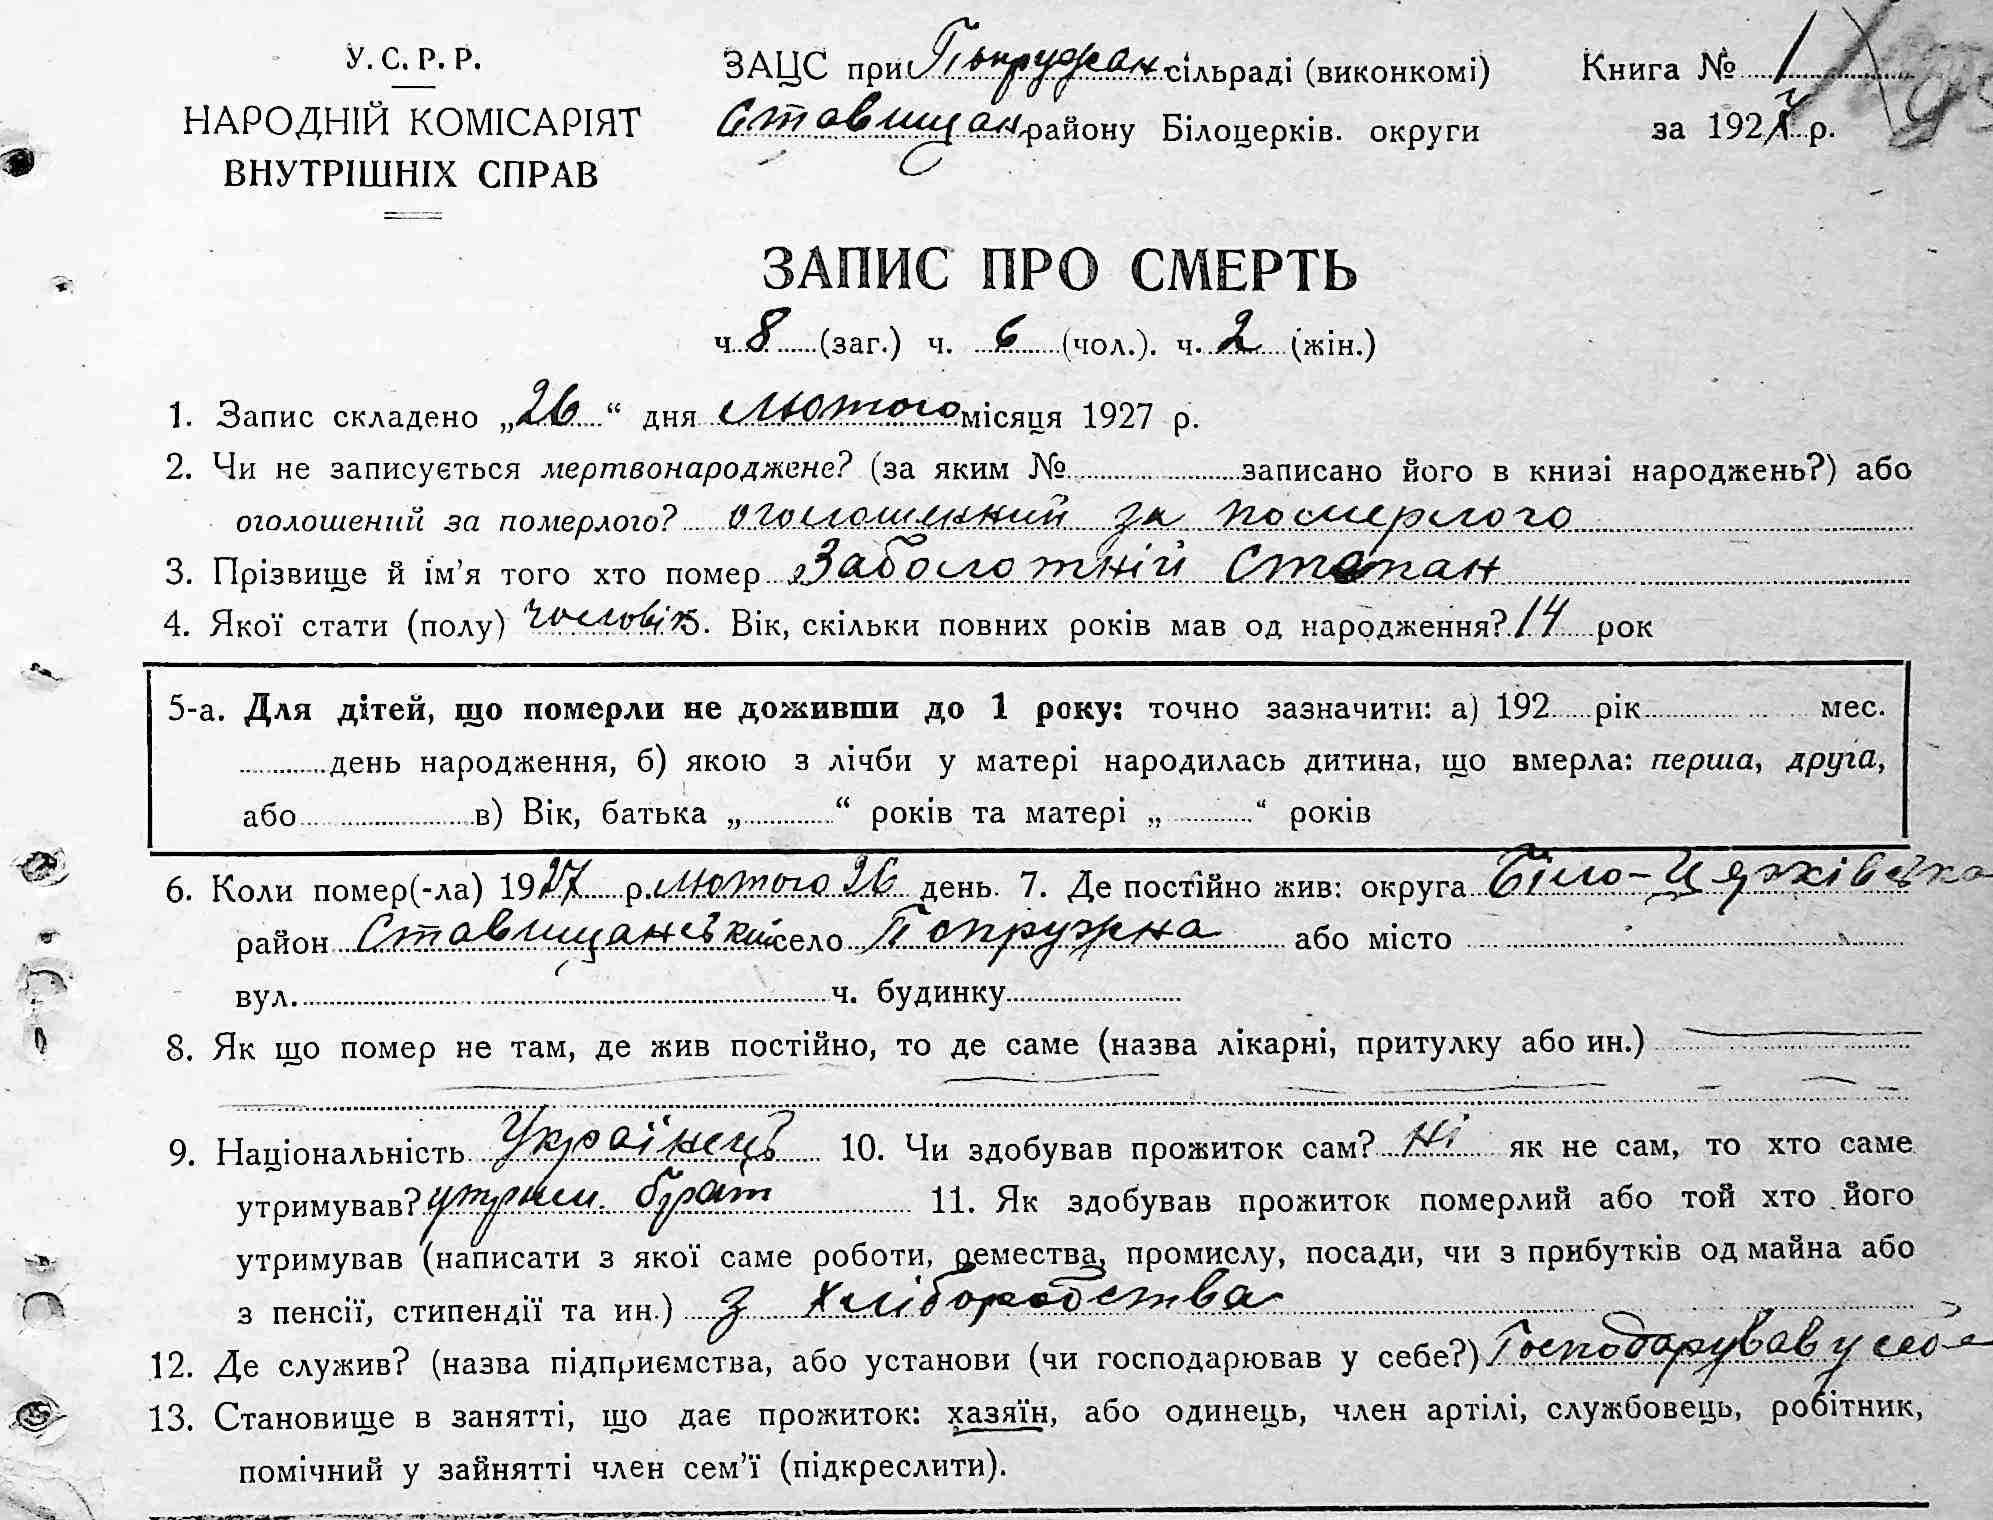 У. С. Р. Р.
НАРОДНІЙ КОМІСАРІЯТ
ВНУТРІШНІХ СПРАВ
ЗАЦС при Попружан сільраді (виконкомі)
Ставищан району Білоцерків. округи
Книга № 1
за 1927 р.
ЗАПИС ПРО СМЕРТЬ
ч. 8 (заг.) ч. 6 (чол.). ч. 2 (жін.)
1. Запис складено „26“ дня лютого місяця 1927 р.
2. Чи не записується мертвонароджене? (за яким № записано його в книзі народжень?) або
оголошений за померлого? оголошений за померлого
3. Прізвище й ім’я того хто помер Заболотній Степан
4. Якої стати (полу) чоловік. Вік, скільки повних років мав од народження? 14 рок
5-а. Для дітей, що померли не доживши до 1 року: точно зазначити: а) 192 рік мес.
день народження, б) якою з лічби у матері народилась дитина, що вмерла: перша, друга,
або в) Вік, батька „ “ років та матері „ “ років
6. Коли помер(-ла) 1927 р. лютого 26 день. 7. Де постійно жив: округа Біло-Церківська
район Ставищанський село Попружна або місто
вул. ч. будинку
8. Як що помер не там, де жив постійно, то де саме (назва лікарні, притулку або ин.)
9. Національність Українець 10. Чи здобував прожиток сам? Ні як не сам, то хто саме
утримував? утрим. брат 11. Як здобував прожиток померлий або той хто його
утримував (написати з якої саме роботи, ремества, промислу, посади, чи з прибутків од майна або
з пенсії, стипендії та ин.) з Хліборобства
12. Де служив? (назва підприємства, або установи (чи господарював у себе?) Господарував у себе
13. Становище в занятті, що дає прожиток: хазяїн, або одинець, член артілі, службовець, робітник,
помічний у зайнятті член сем’ї (підкреслити).